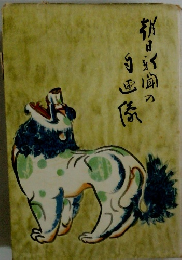 朝日新聞の
自画像